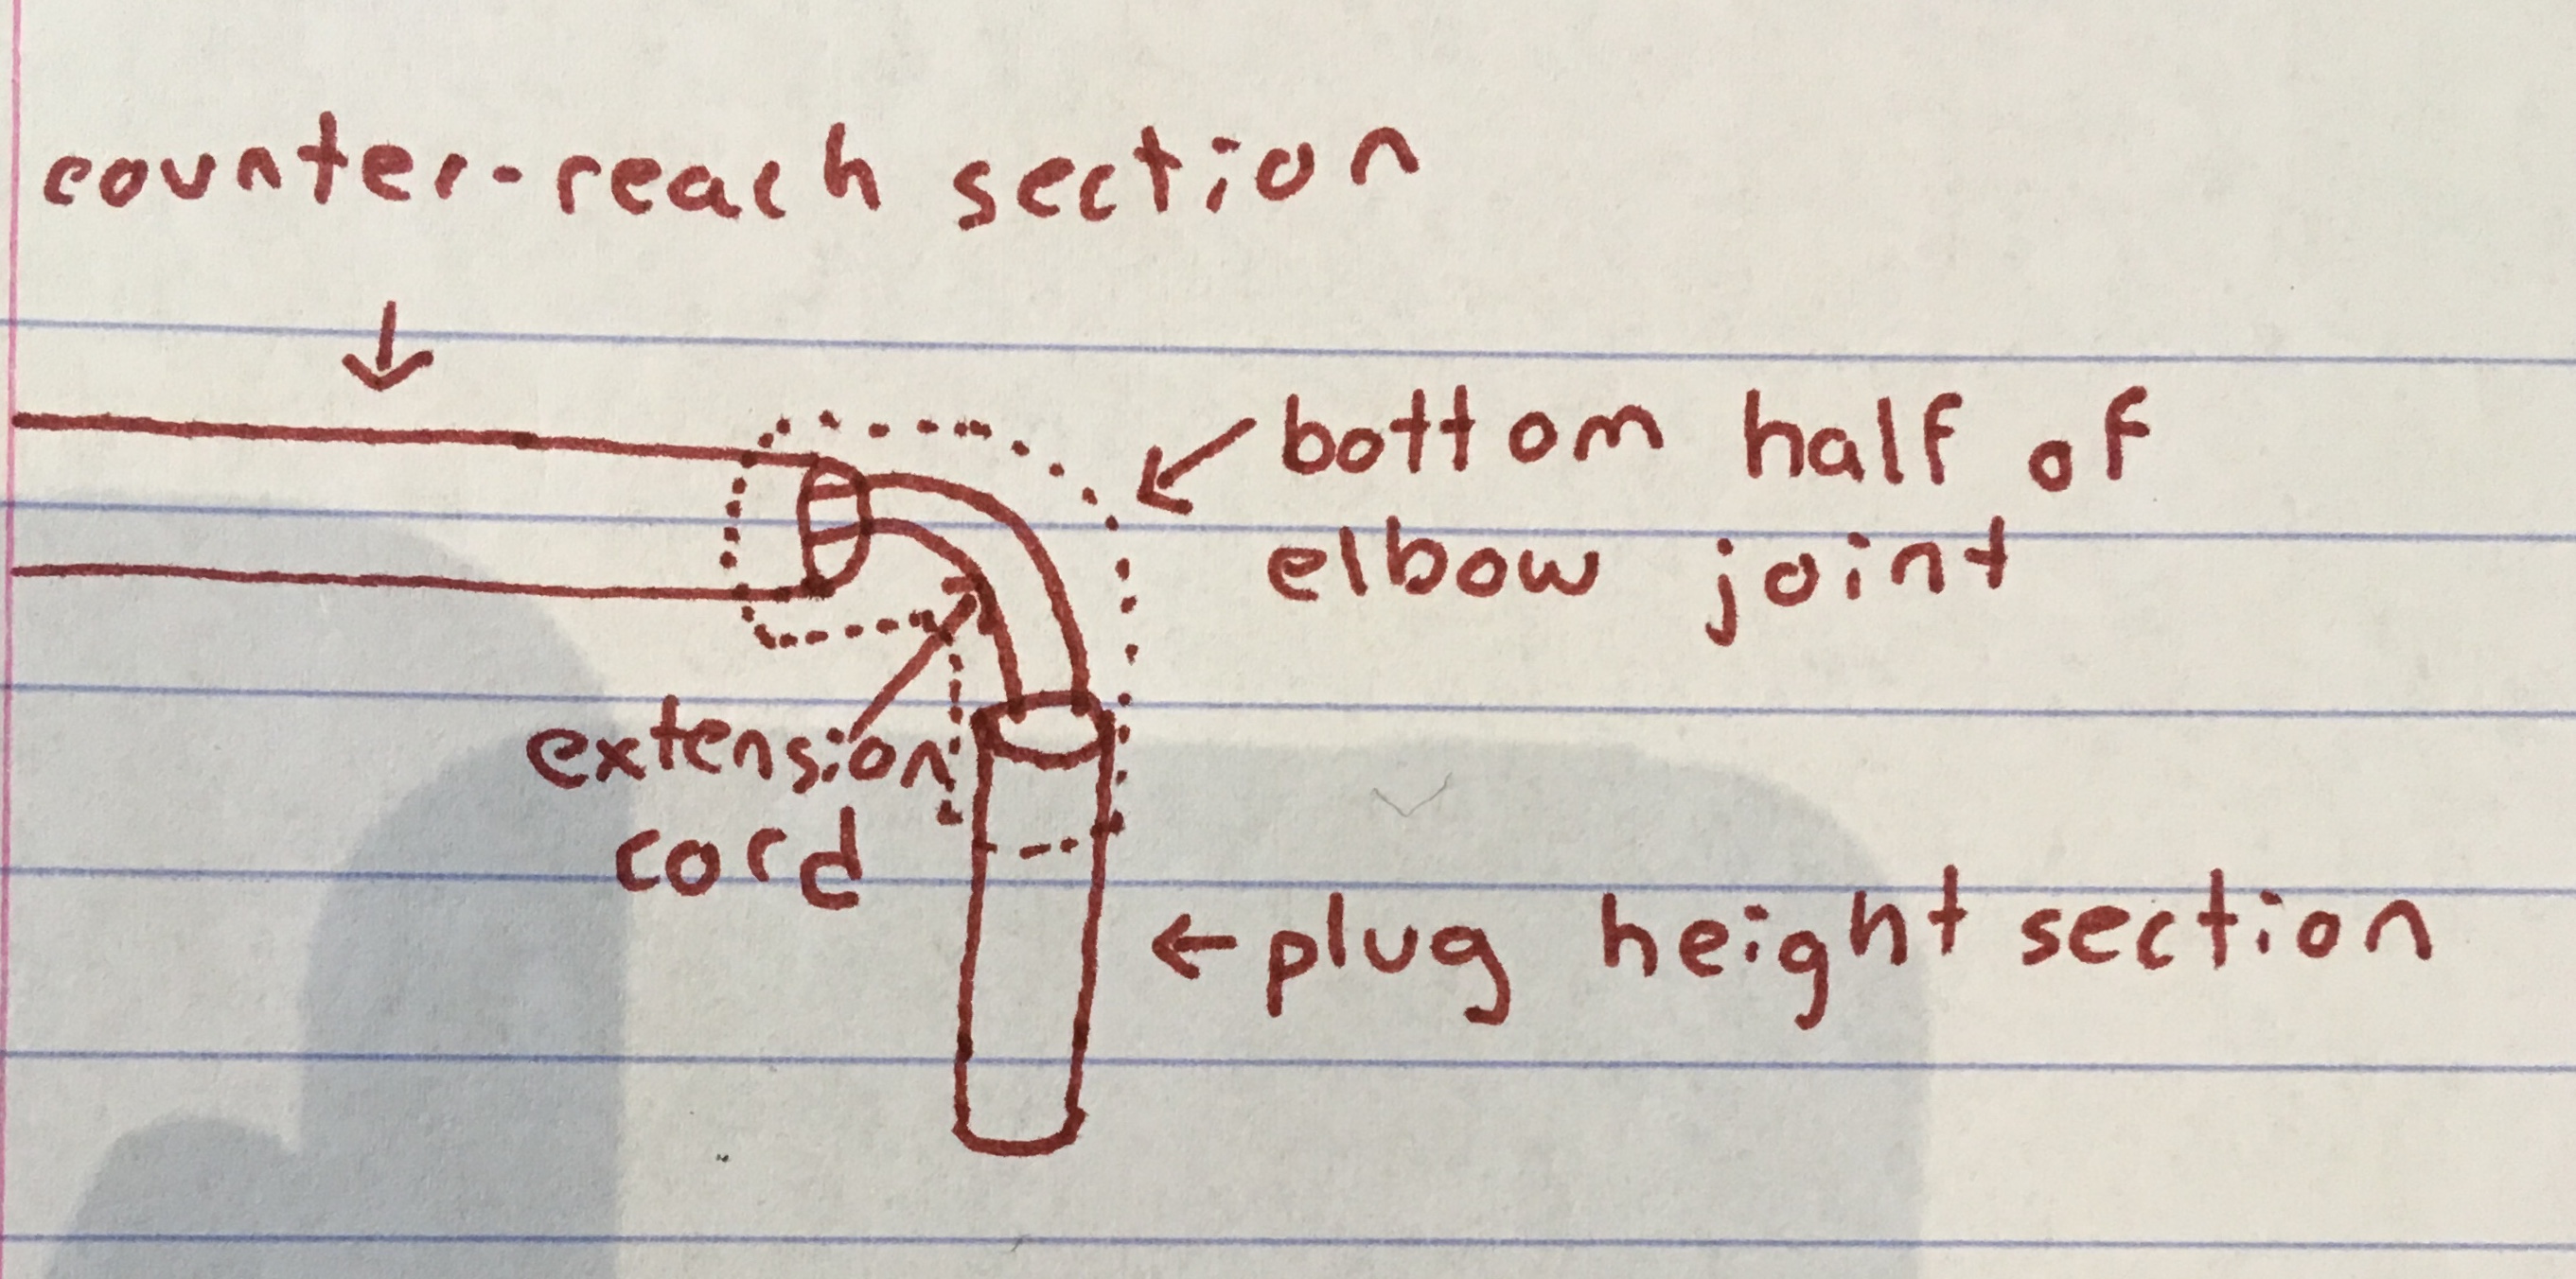 counter-reach section
bottom half of
elbow joint
extension
cord
plug height section